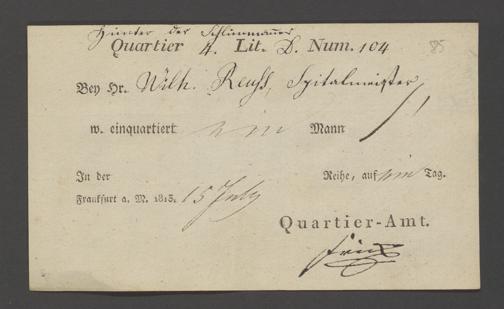 Hinter der Schlimmauer
Quartier 4. Lit. D. Num. 104
85
Bey Hr. Wilh. Reuss, Spitalmeister
w. einquartiert ein Mann
In der Reihe, auf ein Tag.
Frankfurt a. M. 1815. 15 July
Quartier-Amt.